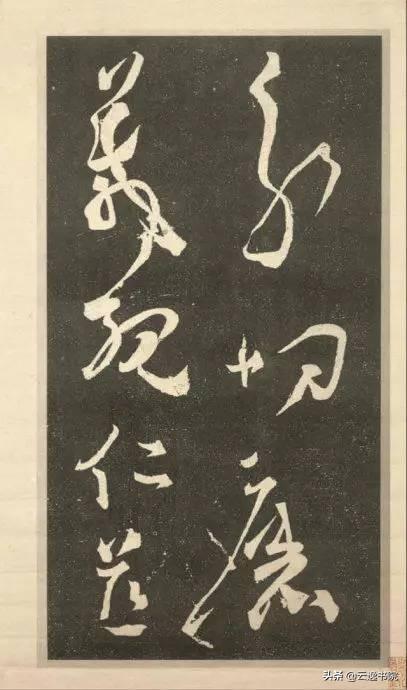 分切磨
箴規仁慈
头条 @云逸书院